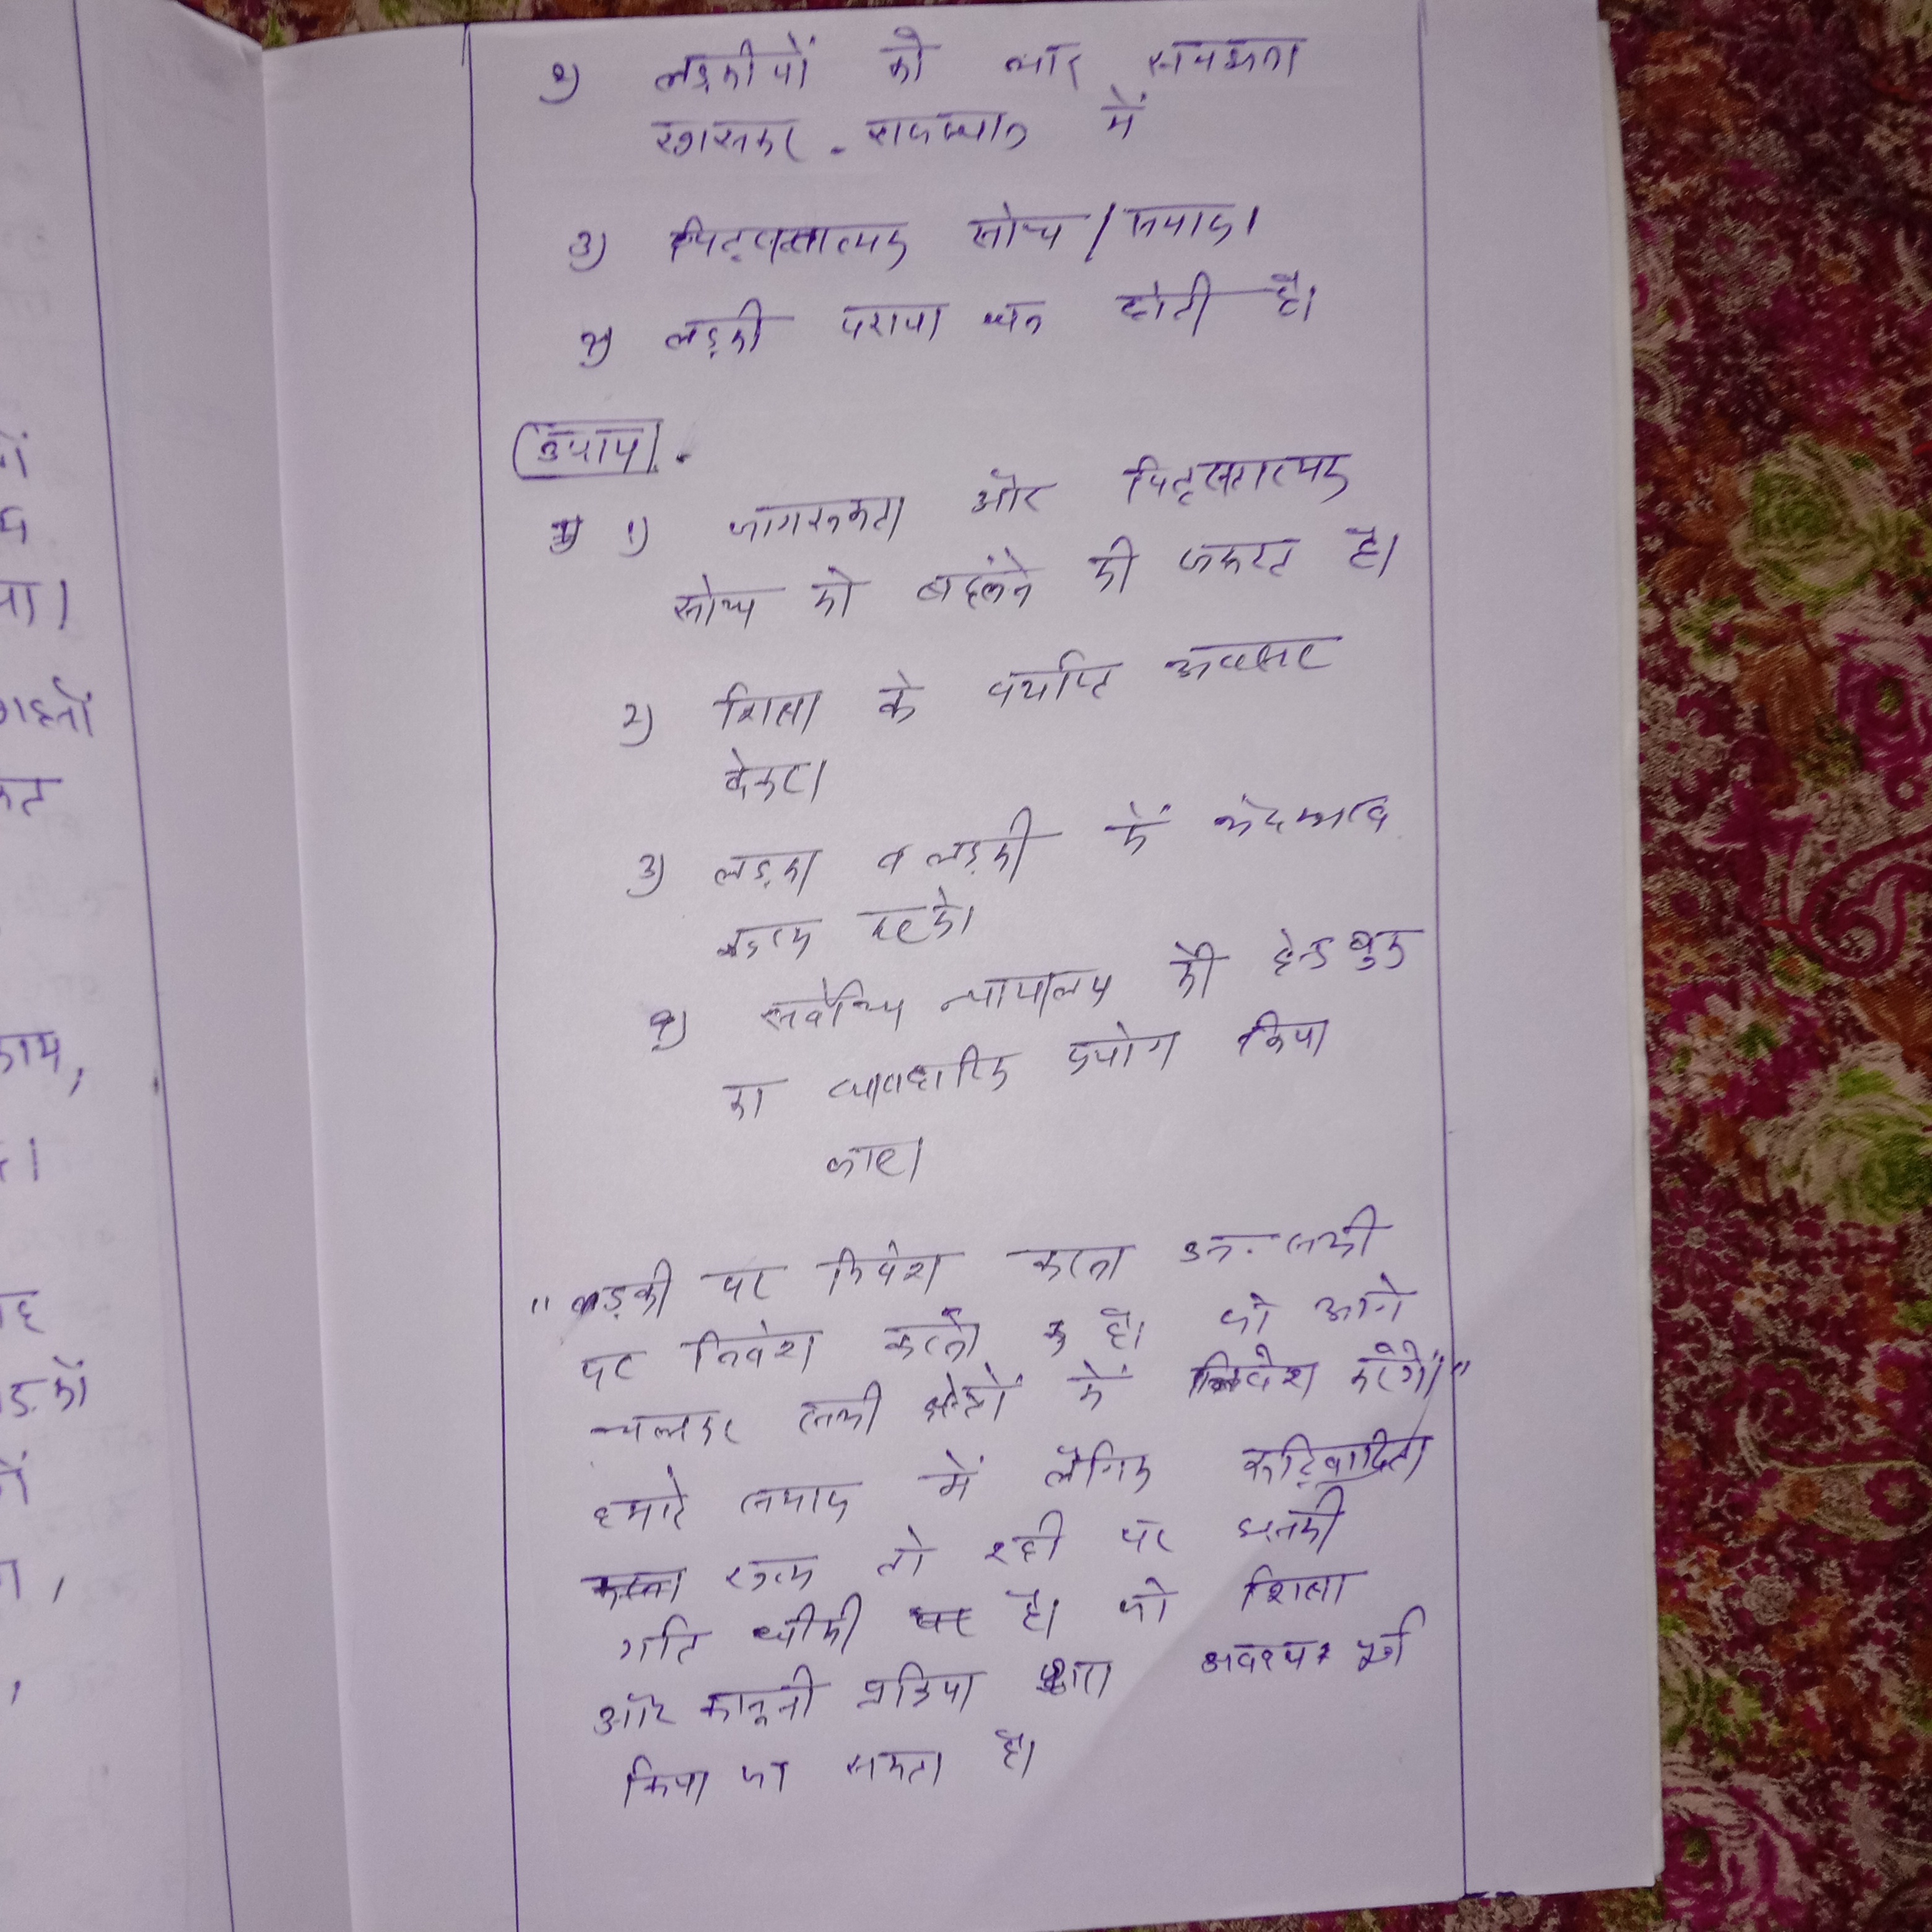 २) लड़कीयों को भार समझना
खासकर - राजस्थान में
3) पितृसत्तात्मक सोच / समाज।
४) लड़की पराया धन होती है।
उपाय।
1) जागरूकता और पितृसत्तात्मक
सोच को बदलने की जरूरत है।
2) शिक्षा के पर्याप्त अवसर
देकर।
3) लड़का व लड़की में भेदभाव
खत्म करके।
४) सर्वोच्च न्यायालय की हेन्डबुक
का व्यावहारिक प्रयोग किया
जाए।
"लड़की पर निवेश करना उन सभी
पर निवेश करना है। जो आगे
चलकर सभी क्षेत्रों में निवेश करेंगे।"
हमारे समाज में लैंगिक रूढ़िवादिता
खत्म तो रही पर इसकी
गति धीमी है। जो शिक्षा
और कानूनी प्रक्रिया द्वारा अवश्य पूर्ण
किया जा सकता है।